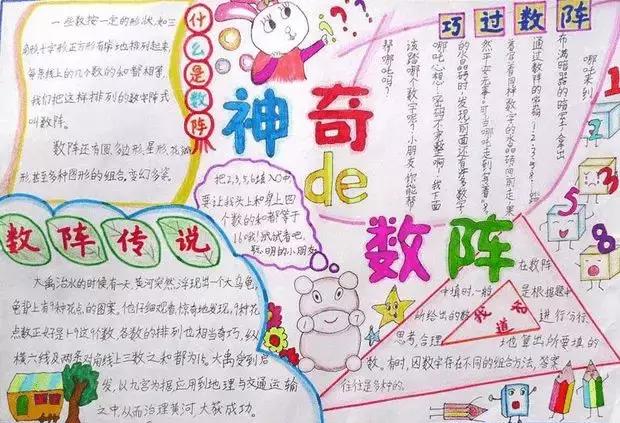 什么是数阵
一些数按一定的形状,如三
角形、十字形、正方形有规律地排列起来,
每条线上的几个数的和都相等,
我们把这样排列的数字阵式
叫数阵。
数阵还有圆、多边形、星形、花瓣
形,甚至多种图形的组合,变幻多姿。
神奇
de
数阵
巧过数阵
哪吒来到
布满暗器的暗室,拿出
通过数阵的密码
着写着同样数字的水晶砖向前走,果
然平安无事。可当哪吒走到写着"8"
的水晶砖时,发现前面还有许多数字
哪吒心想:密码不完整啊!我下面
该踏哪个数字呢?小朋友,你能帮
帮哪吒吗?
1
2
3
5
8
把2,3,5,6填入○中,
要让我头上和身上四
个数的和都等于
16哦!试试看吧,
聪明的小朋友
数阵传说
大禹治水的时候有一天,黄河突然浮现出一个大乌龟,
龟背上有9种花点的图案。他仔细观看,惊奇地发现,9种花
点数正好是1~9这九个数,各数的排列也相当奇巧,纵
横六线及两条对角线上三数之和都为15。大禹受到启
发,以九宫为据应用到地理与交通运输
之中,从而治理黄河大获成功。
我
知
道
在数阵
中填时,一般是根据题中
所给出的数进行分析、
思考,合理地算出所要填的
数。有时,因数字存在不同的组合方法,答案
往往是多种的。